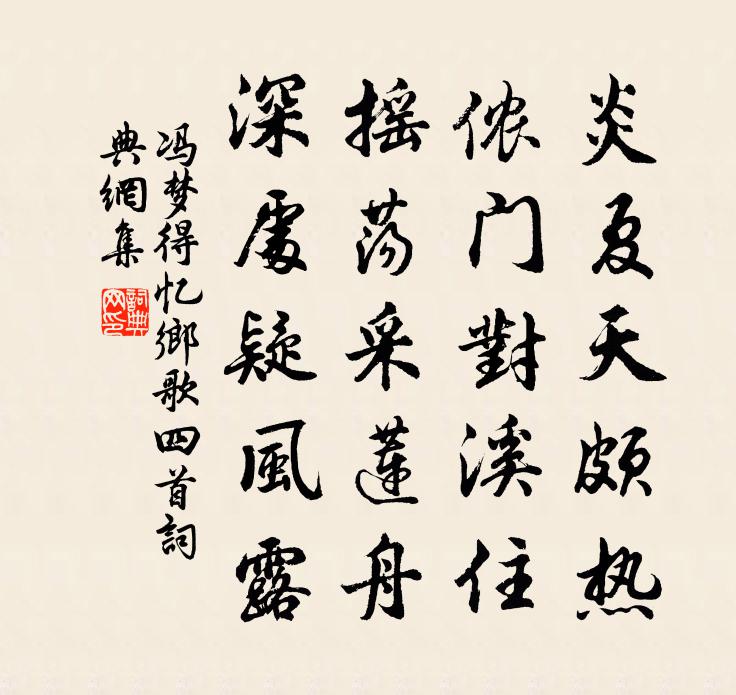 炎夏天颇热
侬门對溪住
摇荡采蓮舟
深處疑風露
冯梦得忆鄉歌四首詞
典網集
詞典
网印